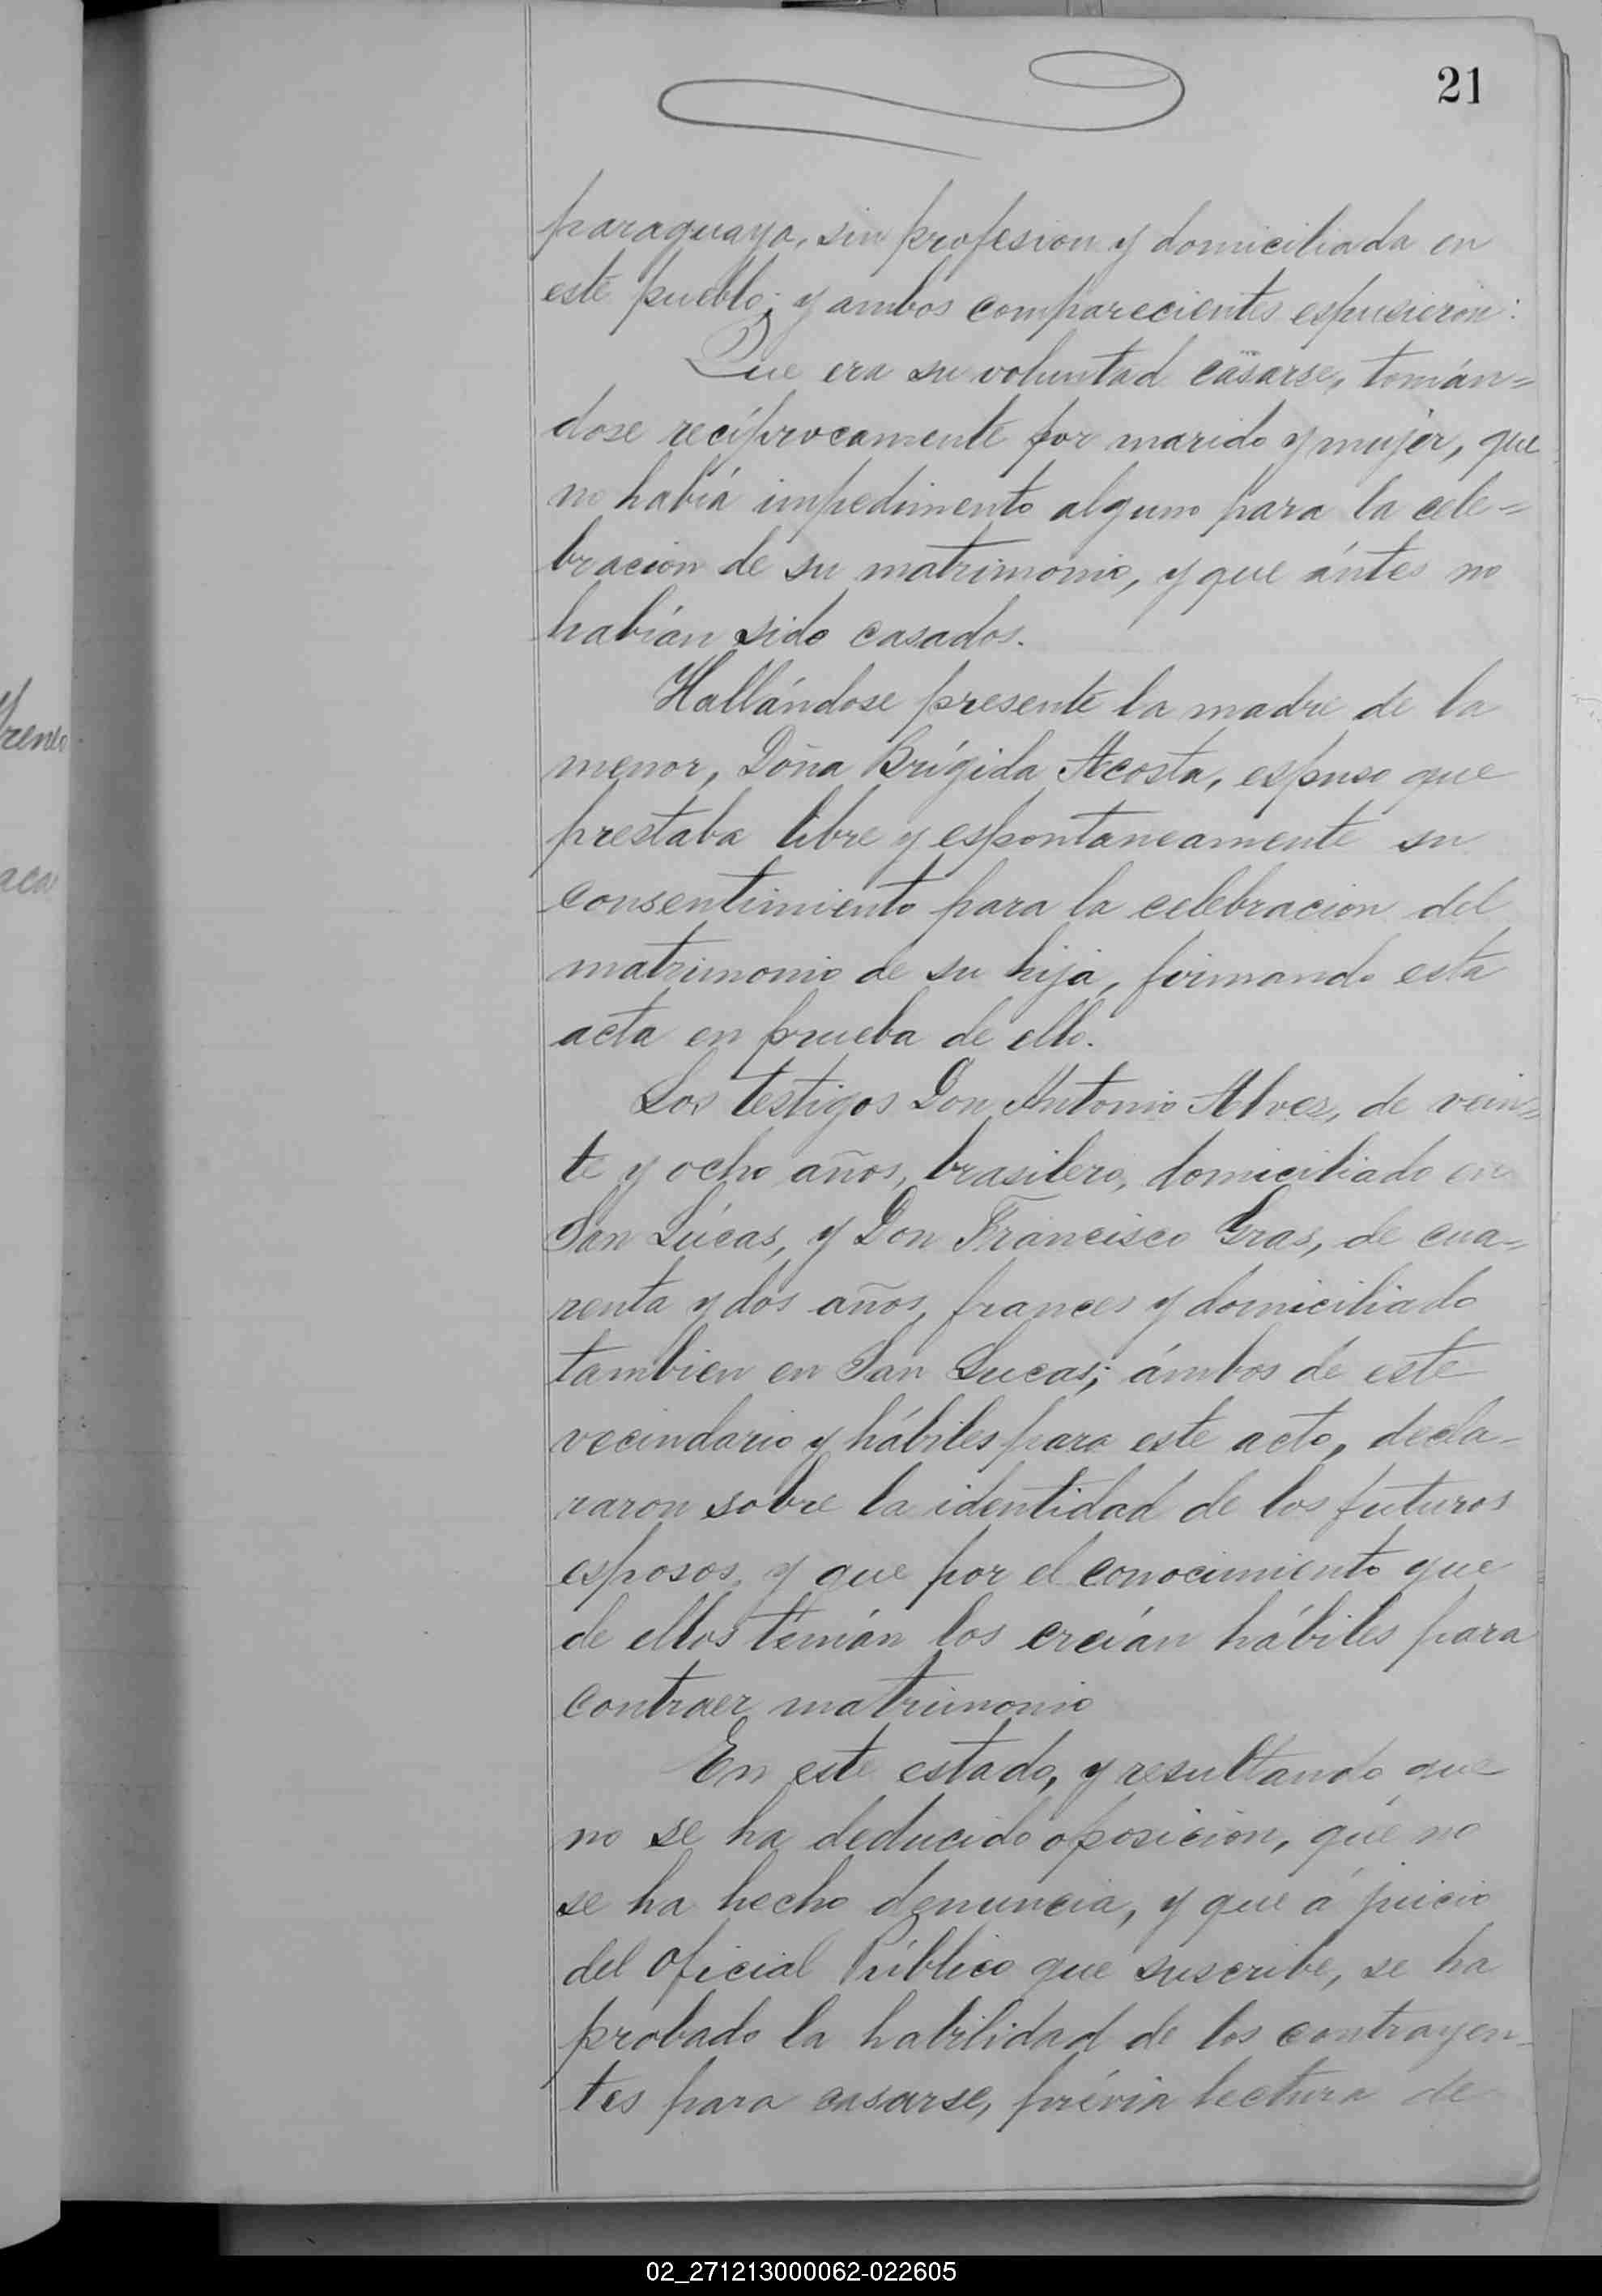 21
paraguaya, sin profesion y domiciliada en
este pueblo; y ambos comparecientes espusieron:
Que era su voluntad casarse, tomán=
dose recíprocamente por marido y mujer, que
no había impedimento alguno para la cele=
bracion de su matrimonio, y que ántes no
habían sido casados.
Hallándose presente la madre de la
menor, Doña Brígida Acosta, espuso que
prestaba libre y espontaneamente su
consentimiento para la celebracion del
matrimonio de su hija, firmando esta
acta en prueba de ello.
Los testigos Don Antonio Alves, de vein=
te y ocho años, brasilero, domiciliado en
San Lúcas, y Don Francisco Gras, de cua=
renta y dos años, frances y domiciliado
tambien en San Lucas; ámbos de este
vecindario y hábiles para este acto, decla-
raron sobre la identidad de los futuros
esposos, y que por el conocimiento que
de ellos tenían los creían hábiles para
contraer matrimonio
En este estado, y resultando que
no se ha deducido oposicion, que no
se ha hecho denuncia, y que á juicio
del Oficial Público que suscribe, se ha
probado la habilidad de los contrayen-
tes para casarse, prévia lectura de
02_271213000062-022605